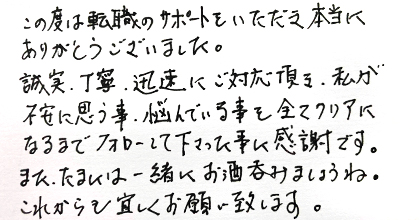 この度は転職のサポートをいただき本当に
ありがとうございました。
誠実、丁寧、迅速にご対応頂き、私が
不安に思う事、悩んでいる事を全てクリアに
なるまでフォローして下さった事に感謝です。
また、たまには一緒にお酒呑みましょうね。
これからも宜しくお願い致します。